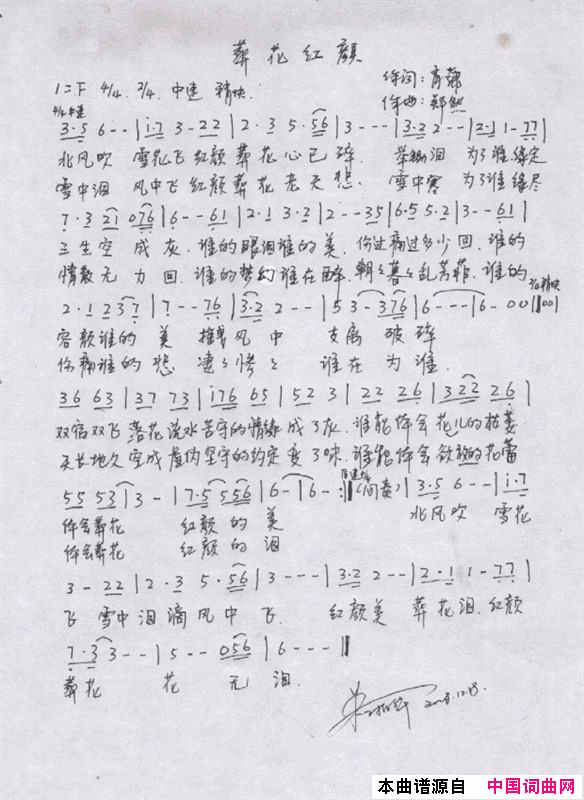 葬花红颜
1=F 4/4. 2/4. 中速 稍快.
作词:
作曲:郑然
4/4 中速
3·5 6-- | i·7 3-22 | 2·3 5·56 | 3--- | 3·2 2-- | 2·1 1-77 |
北风吹 雪花飞红颜葬花心已碎 泪 为了谁缘定
雪中泪 风中飞红颜葬花老天悲. 雪中寒 为了谁缘尽
7·3 21 076 | 6--61 | 2·1 3·2 | 2--35 | 6·5 5·2 | 3--61 |
三生空成灰.谁的眼泪谁的美.伤过痛过多少回.谁的
情散无力回.谁的梦幻谁在醉.朝朝暮暮乱芳菲.谁的
2·1 2 3 7 | 7--76 | 3·2 2-- | 5 3-376 | 6--- | 6-00 | 00 |
2/4 稍快
容颜谁的美 风中 支离破碎
你痛谁的悲 凄凄惨惨 谁在为谁.
36 63 | 37 73 | i76 65 | 52 3 | 22 26 | 322 26 |
双宿双飞落花流水苦守的情缘成了灰.谁能体会花儿的枯萎
天长地久空成虚伪坚守的约定变了味.谁能体会 的花蕾
55 53 | 3- | 7·5 556 | 6- | 6-- :‖ (间奏) | 3·5 6-- | i·7
体会葬花 红颜的美 北风吹 雪花
体会葬花 红颜的泪
3-22 | 2·3 5·56 | 3--- | 3·2 2-- | 2·1 1-77 |
飞 雪中泪滴风中飞. 红颜美 葬花泪.红颜
7·3 3-- | 5--056 | 6--- ‖
葬花 花无泪.
本曲谱源自 中国词曲网